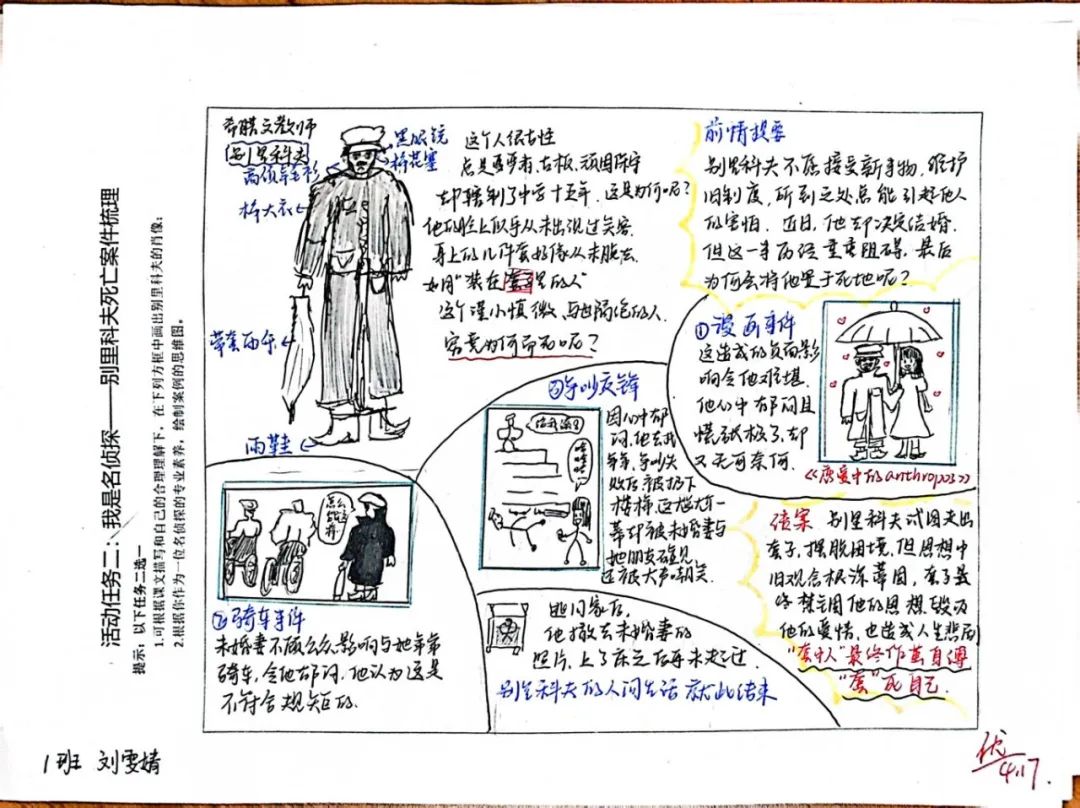 活动任务二：我是名侦探——别里科夫死亡案件梳理
提示：以下任务二选一
1.可根据课文描写和自己的合理理解下，在下列方框中画出别里科夫的肖像；
2.根据你作为一位名侦探的专业素养，绘制案例的思维图。
希腊文教师
别里科夫
高领羊毛衫
棉大衣
带套雨伞
雨鞋
黑眼镜
棉花塞
这个人很古怪
总是
古板、顽固陈守
却辖制了中学十五年，这是为何呢？
他的脸上似乎从未出现过笑容
身上的几件套好像从未脱去
如同“装在套子里的人”
这个谨小慎微、与世隔绝的人
究竟为何而死呢？
前情提要
别里科夫不愿接受新事物，维护
旧制度，所到之处总能引起他人
的害怕。近日，他却决定结婚。
但这一事历经重重阻碍，最后
为何会将他置于死地呢？
①漫画事件
这造成的负面影
响令他难堪。
他心中郁闷且
慌张极了，却
又无可奈何。
《恋爱中的anthropos》
②骑车事件
怎么能这样
未婚妻不顾公众影响与她弟弟
骑车，令他郁闷，他认为这是
不符合规矩的。
③争吵交锋
给我滚！
哈哈哈
因心中郁
闷，他去找
弟弟，争吵失
败后被扔下
楼梯，这尴尬一
幕却被未婚妻与
她朋友碰见
还被大声嘲笑。
逃回家后，
他撤去未婚妻的
照片，上了床之后再未起过。
别里科夫的人间生活就此结束
结案 别里科夫试图走出
套子，摆脱困境，但思想中
旧观念根深蒂固，套子最
终禁锢他的思想，毁灭
他的爱情，也造成人生悲剧
“套中人”最终作茧自缚
“套”死自己。
1班 刘雯婧
优
4.17.